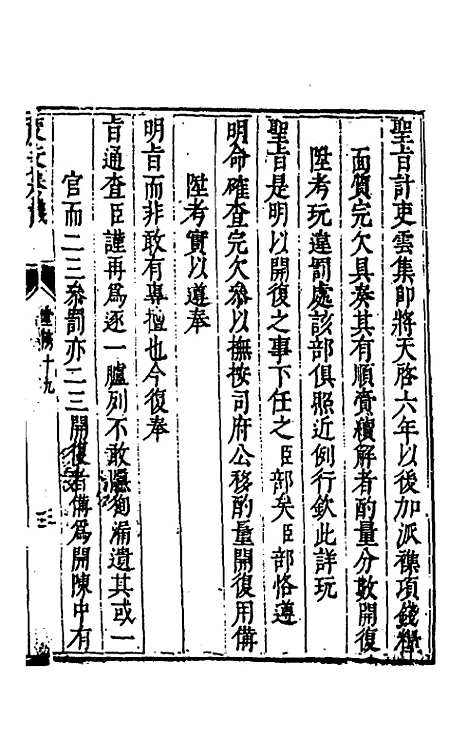 聖旨計吏雲集即將天啓六年以後加派襍項錢糧
面質完欠具湊其有順賫續解者酌量分數開復
陞考玩違罰處該部俱照近例行欽此詳玩
聖旨是明以開復之事下任之臣部矣臣部恪遵
明命確查完欠叅以撫按司府公移酌量開復用備
陞考實以遵奉
明旨而非敢有專擅也今復奉
旨通查臣謹再爲逐一臚列不敢漏遺其或一
官而二三叅罰亦二三開復者傳爲開陳中有
堂稿十九
三